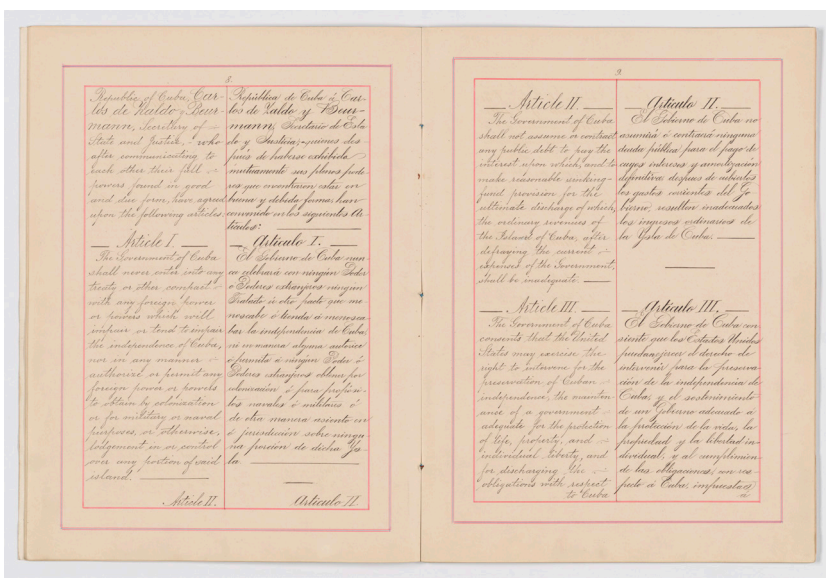 8.
Republic of Cuba, Car-
los de Zaldo y Beur-
mann, Secretary of
State and Justice, who
after communicating to
each other their full
powers found in good
and due form, have agreed
upon the following articles.
Article I.
The Government of Cuba
shall never enter into any
treaty or other compact
with any foreign power
or powers which will
impair or tend to impair
the independence of Cuba,
nor in any manner
authorize or permit any
foreign power or powers
to obtain by colonization
or for military or naval
purposes, or otherwise,
lodgement in or control
over any portion of said
island.
Article II.
República de Cuba á Car-
los de Zaldo y Beur-
mann, Secretario de Esta
do y Justicia, quienes des
pués de haberse exhibido
mutuamente sus plenos pode
res que encontraron estar en
buena y debida forma, han
convenido en los siguientes Ar
tículos:
Artículo I.
El Gobierno de Cuba nun
ca celebrará con ningún Poder
o Poderes extranjeros ningún
Tratado ú otro pacto que me-
noscabe ó tienda á menosca
bar la independencia de Cuba,
ni en manera alguna autorice
ó permita á ningún Poder ó
Poderes extranjeros obtener por
colonización ó para propósi-
tos navales ó militares ó
de otra manera asiento en
ó jurisdicción sobre ningu
na porción de dicha Ys
la.
Artículo II
9.
Article II.
The Government of Cuba
shall not assume or contract
any public debt to pay the
interest upon which, and to
make reasonable sinking-
fund provision for the
ultimate discharge of which,
the ordinary revenues of
the Island of Cuba, after
defraying the current
expenses of the Government,
shall be inadequate.
Article III.
The Government of Cuba
consents that the United
States may exercise the
right to intervene for the
preservation of Cuban
independence, the mainten-
ance of a government
adequate for the protection
of life, property, and
individual liberty, and
for discharging the
obligations with respect
to Cuba
Artículo II.
El Gobierno de Cuba no
asumirá ó contraerá ninguna
deuda pública para el pago de
cuyos intereses y amortización
definitiva, despues de cubiertos
los gastos corrientes del Go
bierno, resulten inadecuados
los ingresos ordinarios de
la Ysla de Cuba.
Artículo III.
El Gobierno de Cuba con
siente que los Estados Unidos
puedan ejercer el derecho de
intervenir para la preserva
ción de la independencia de
Cuba, y el sostenimiento
de un Gobierno adecuado á
la protección de la vida, la
propiedad y la libertad in-
dividual, y al cumplimien
de las obligaciones, con res-
pecto á Cuba, impuestas
á